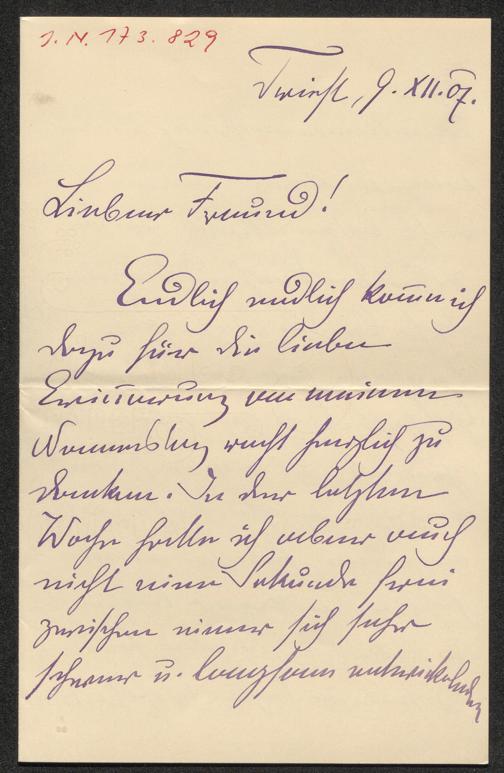 J.N. 173.829
Triest, 9. XII. 07.
Lieber Freund!
Endlich endlich komm ich
dazu für die liebe
Erinnerung an meinen
Namenstag recht herzlich zu
danken. In der letzten
Woche hatte ich aber auch
nicht eine Sekunde frei
zwischen einer sich sehr
schwer u. langsam entwickelnden